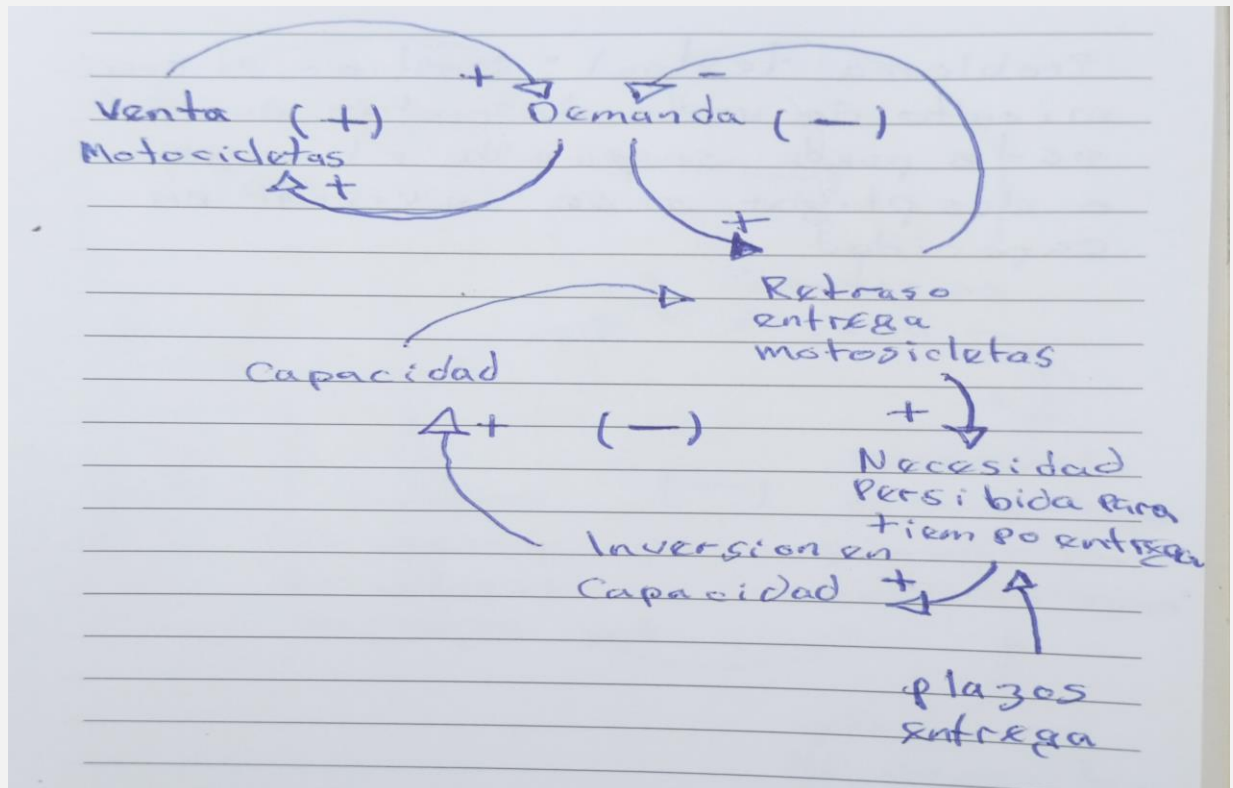 +
-
Venta (+) Demanda (-)
Motocicletas
+
+
Retraso
entrega
motosicletas
Capacidad
+
+ (-)
Necesidad
Persibida para
tiempo entrega
Inversion en
Capacidad +
plazos
entrega